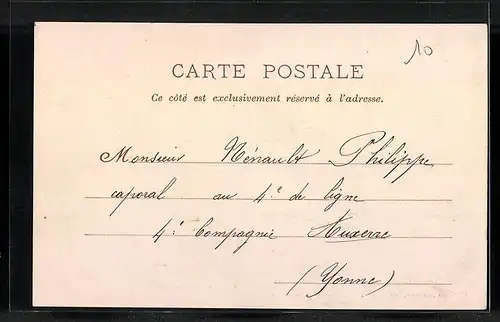 10
CARTE POSTALE
Ce côté est exclusivement réservé à l'adresse.
Monsieur Hénault Philippe
caporal au 4.e de ligne
4.e Compagnie Auxerre
(Yonne)